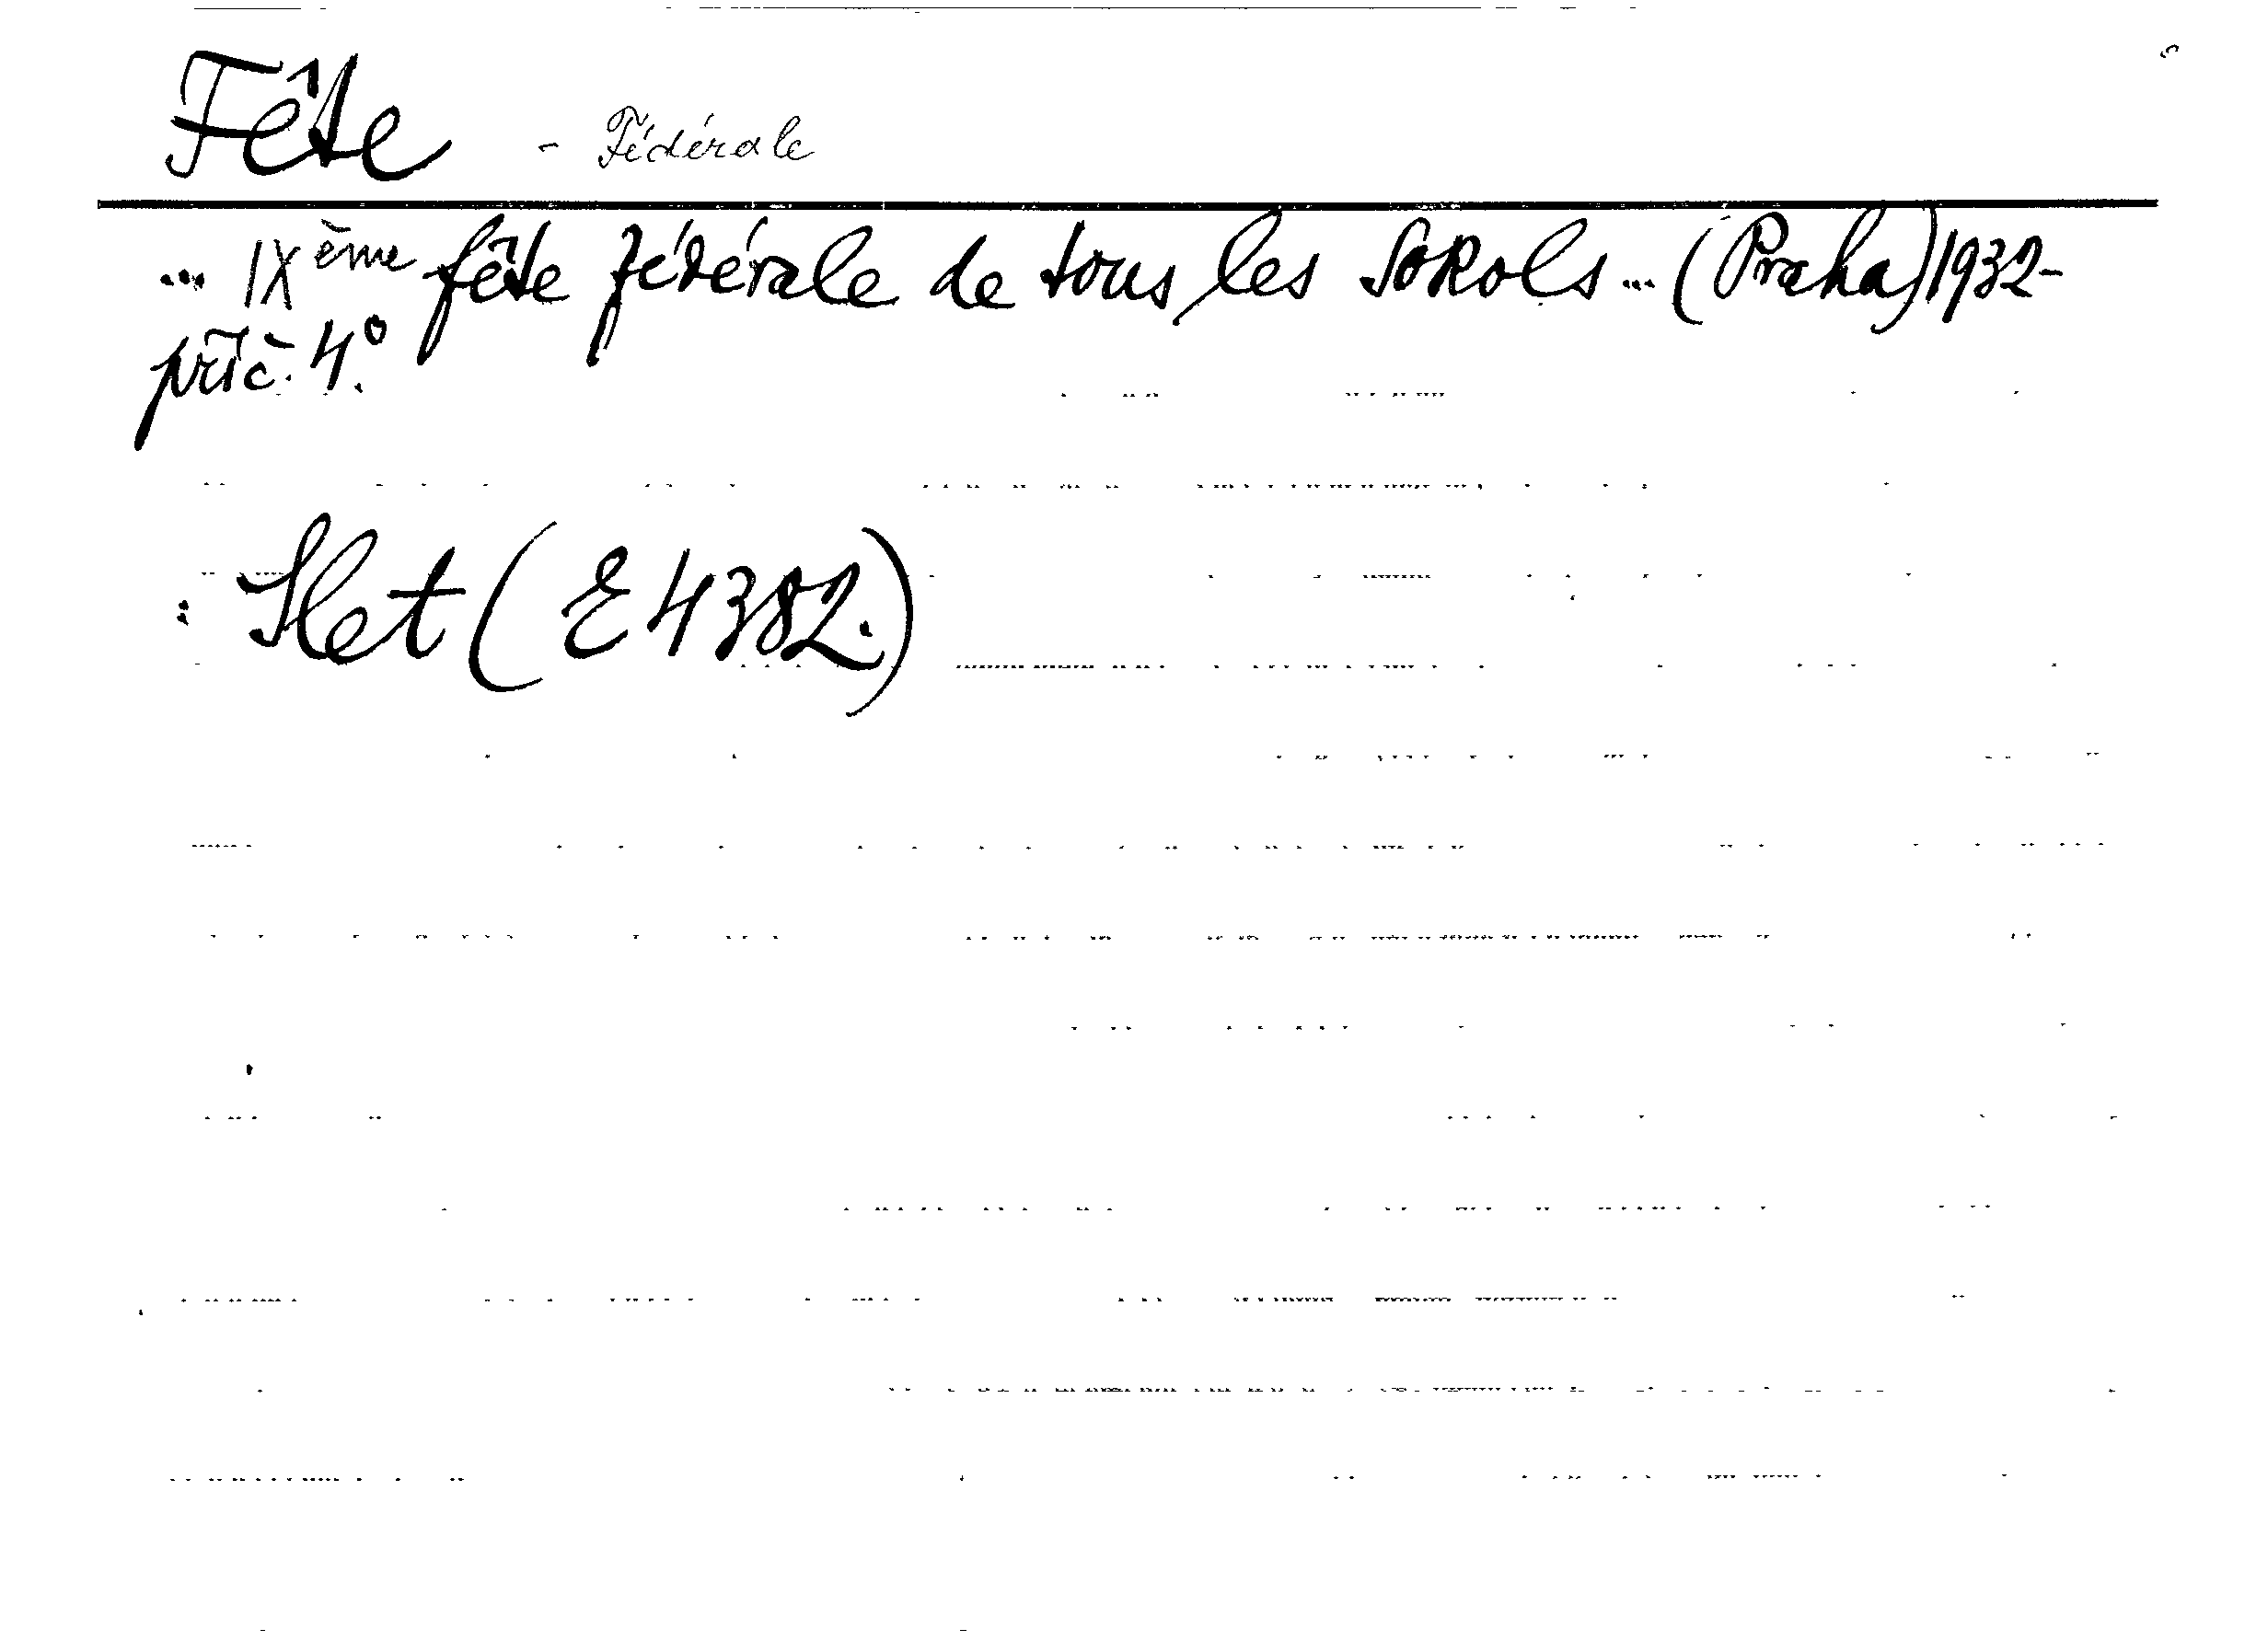 Fête - Fédérale
... IXème fête fédérale de tous les Sokols ... (Praha) 1932-
příč. 4°.
: Slet (E 4382.)